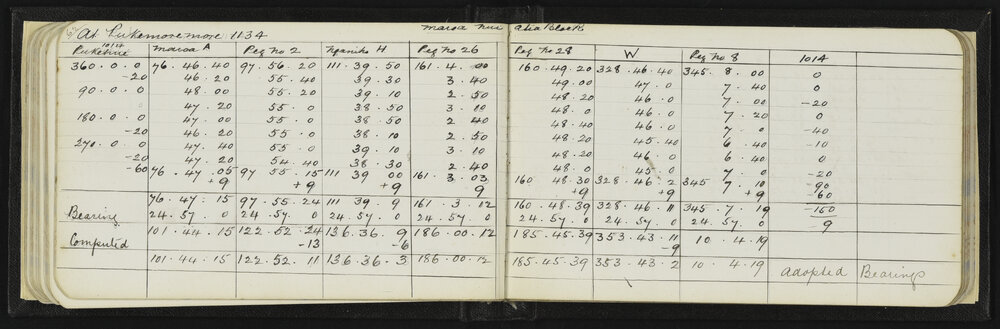 At Pukemoremore 1134 maroa nui atia Block
1014
Pukehue maroa A Peg No 2 Nganiho H Peg No 26 Peg No 28 W Peg No 8 1014
360 . 0 . 0 76 . 46 . 40 97 . 56 . 20 111 . 39 . 50 161 . 4 . 00 160 . 49 . 20 328 . 46 . 40 345 . 8 . 00 0
-20 46 . 20 55 . 40 39 . 30 3 . 40 49 . 00 47 . 0 7 . 40 0
90 . 0 . 0 48 . 00 55 . 20 39 . 10 2 . 50 48 . 20 46 . 0 7 . 00 -20
47 . 20 55 . 0 38 . 50 3 . 10 48 . 0 46 . 0 7 . 20 0
180 . 0 . 0 47 . 00 55 . 0 38 . 50 2 . 40 48 . 40 46 . 0 7 . 0 -40
-20 46 . 20 55 . 0 38 . 10 2 . 50 48 . 20 45 . 40 6 . 40 -10
270 . 0 . 0 47 . 40 55 . 0 39 . 10 3 . 10 48 . 20 46 . 0 6 . 40 0
-20 47 . 20 54 . 40 38 . 30 2 . 40 48 . 0 45 . 0 7 . 0 -20
-60 76 . 47 . 05 97 55 . 15 111 39 00 161 . 3 . 03 160 48 . 30 328 . 46 . 2 345 7 . 10 -90
+9 +9 +9 9 +9 +9 +9 60
76 . 47 . 15 97 . 55 . 24 111 . 39 . 9 161 . 3 . 12 160 . 48 . 39 328 . 46 . 11 345 . 7 . 19 -150
Bearing 24 . 57 . 0 24 . 57 . 0 24 . 57 . 0 24 . 57 . 0 24 . 57 . 0 24 . 57 . 0 24 . 57 . 0 -9
Computed 101 . 44 . 15 122 . 52 . 24 136 . 36 . 9 186 . 00 . 12 185 . 45 . 39 353 . 43 . 11 10 . 4 . 19
-13 -6 -9
101 . 44 . 15 122 . 52 . 11 136 . 36 . 3 186 . 00 . 12 185 . 45 . 39 353 . 43 . 2 10 . 4 . 19 adopted Bearings